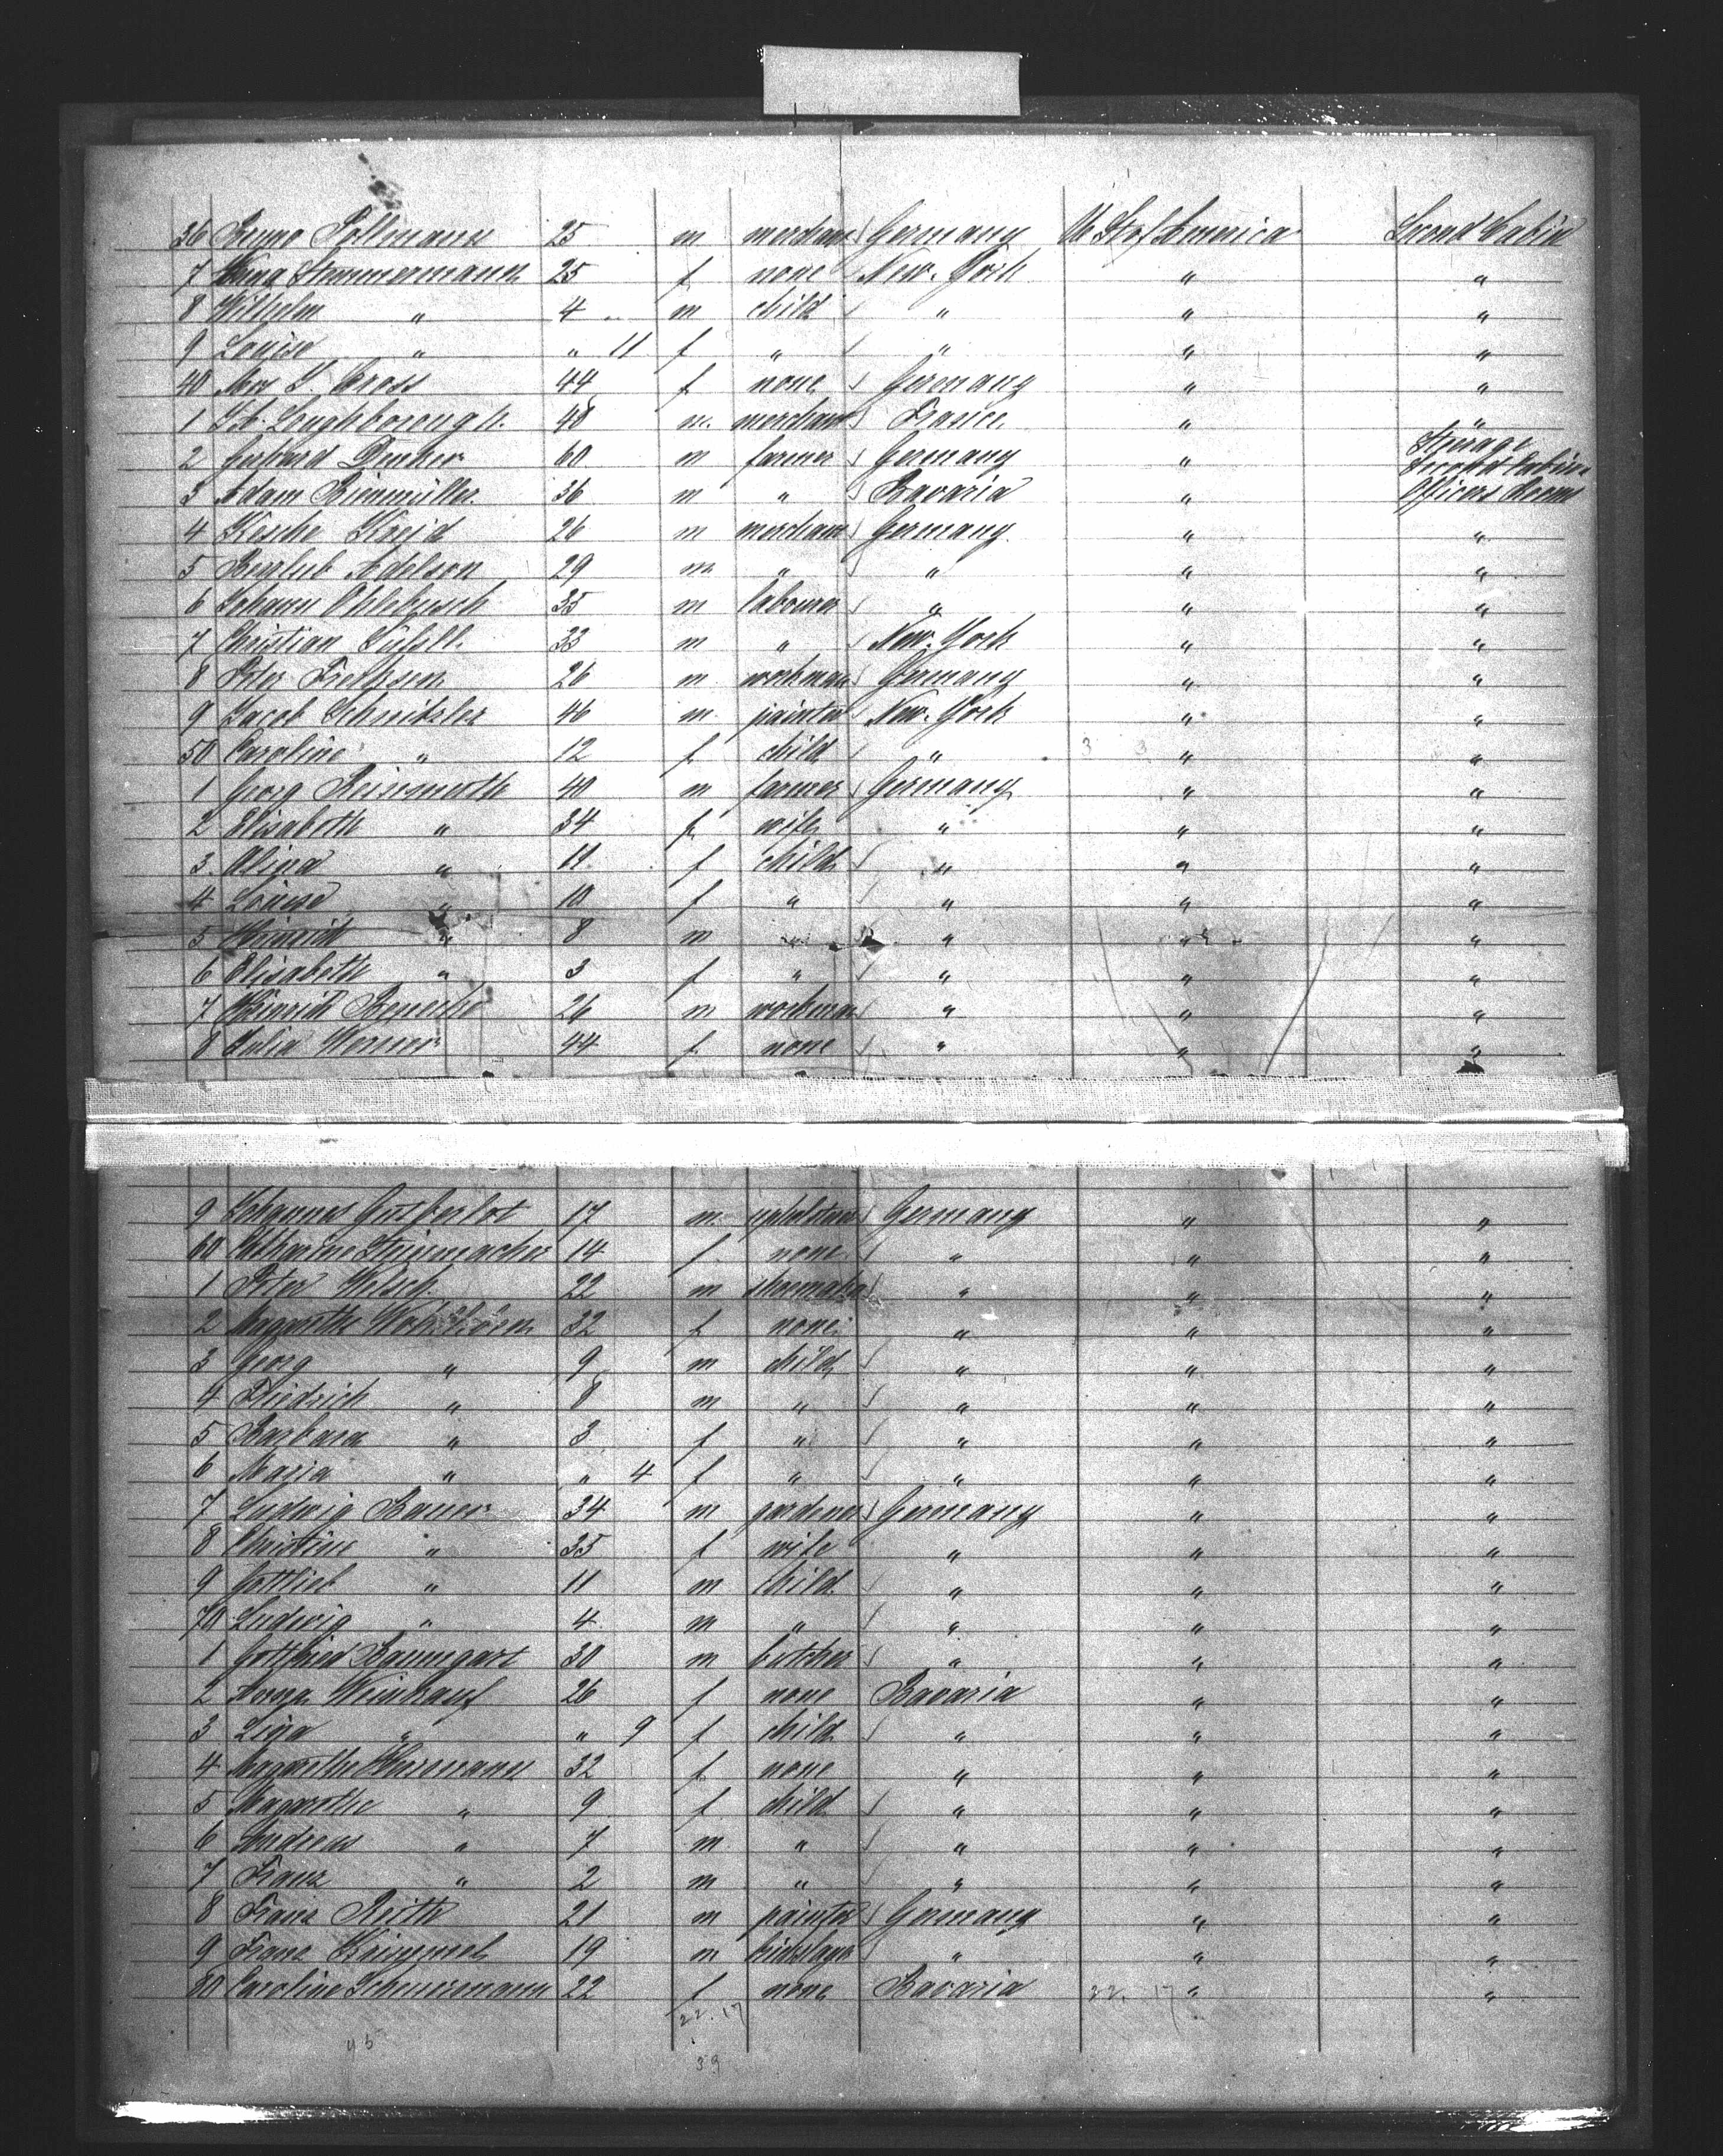 36 Bruno Pollmann 25 m merchant Germany U St of America Second Cabin
7 Anna 25 f none New-York " "
8 Wilhelm " 4 m child " " "
9 Louise " " 11 f " " " "
40 Mrs Gross 44 f none Germany " "
1 Loughborough 48 m. merchant France " "
2 Gerhard 60 m farmer Germany " Steerage
3 Adam Bienmüller 36 m " Bavaria " Second Cabin Officers Rooms
4 26 m merchant Germany " "
5 Adelson 29 m " " " "
6 Johann Ohlebusch 35 m labourer " " "
7 Christian 33 m " New-York " "
8 Peter 26 m workman Germany " "
9 Jacob Schnitzler 46 m painter New-York " "
50 Caroline " 12 f child " 3 3 " "
1 Georg 40 m farmer Germany " "
2 Elisabeth " 34 f wife " " "
3 Alina " 11 f child " " "
4 Louise " 10 f " " " "
5 Heinrich " 8 m " " " "
6 Elisabeth " 3 f " " " "
7 Heinrich 26 m workman " " "
8 Julia Werner 44 f none " " "
9 Johannes Gutberlet 17 m upholsterer Germany " "
60 Catharine 14 f none " " "
1 Peter 22 m shoemaker " " "
2 Margarethe 32 f none " " "
3 Georg " 9 m child " " "
4 Friedrich " 8 m " " " "
5 Barbara " 3 f " " " "
6 Maria " " 4 f " " " "
7 Ludwig Bauer 34 m gardener Germany " "
8 Christine " 35 f wife " " "
9 Gottlieb " 11 m child " " "
70 Ludwig " 4 m " " " "
1 Gottfried Baumgart 30 m butcher " " "
2 Anna 26 f none Bavaria " "
3 Lina " " 9 f child " " "
4 Margarethe Hermann 32 f none " " "
5 Magarethe " 9 f child " " "
6 Andreas " 7 m " " " "
7 Franz " 2 m " " " "
8 Franz Reith 21 m painter Germany " "
9 Franz Krimmel 19 m " " "
80 Caroline Scheuermann 22 f none Bavaria 22. 17 " "
22. 17
45
39